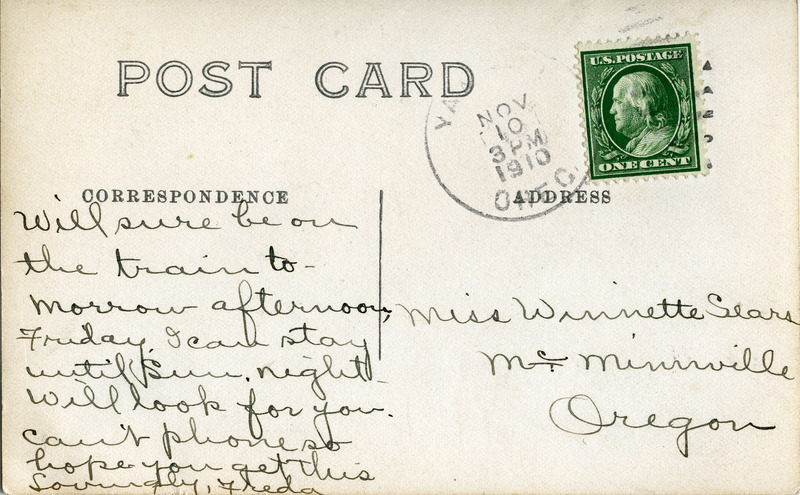 POST CARD
U.S. POSTAGE
ONE CENT
YA
NOV
10
3 PM
1910
OREG
CORRESPONDENCE
Will sure be on
the train to-
morrow afternoon,
Friday. I can stay
until Sun. night
Will look for you.
can't phone so
hope you get this
Lovingly, Freda
ADDRESS
Miss Winnette Sears
Mc Minnville
Oregon